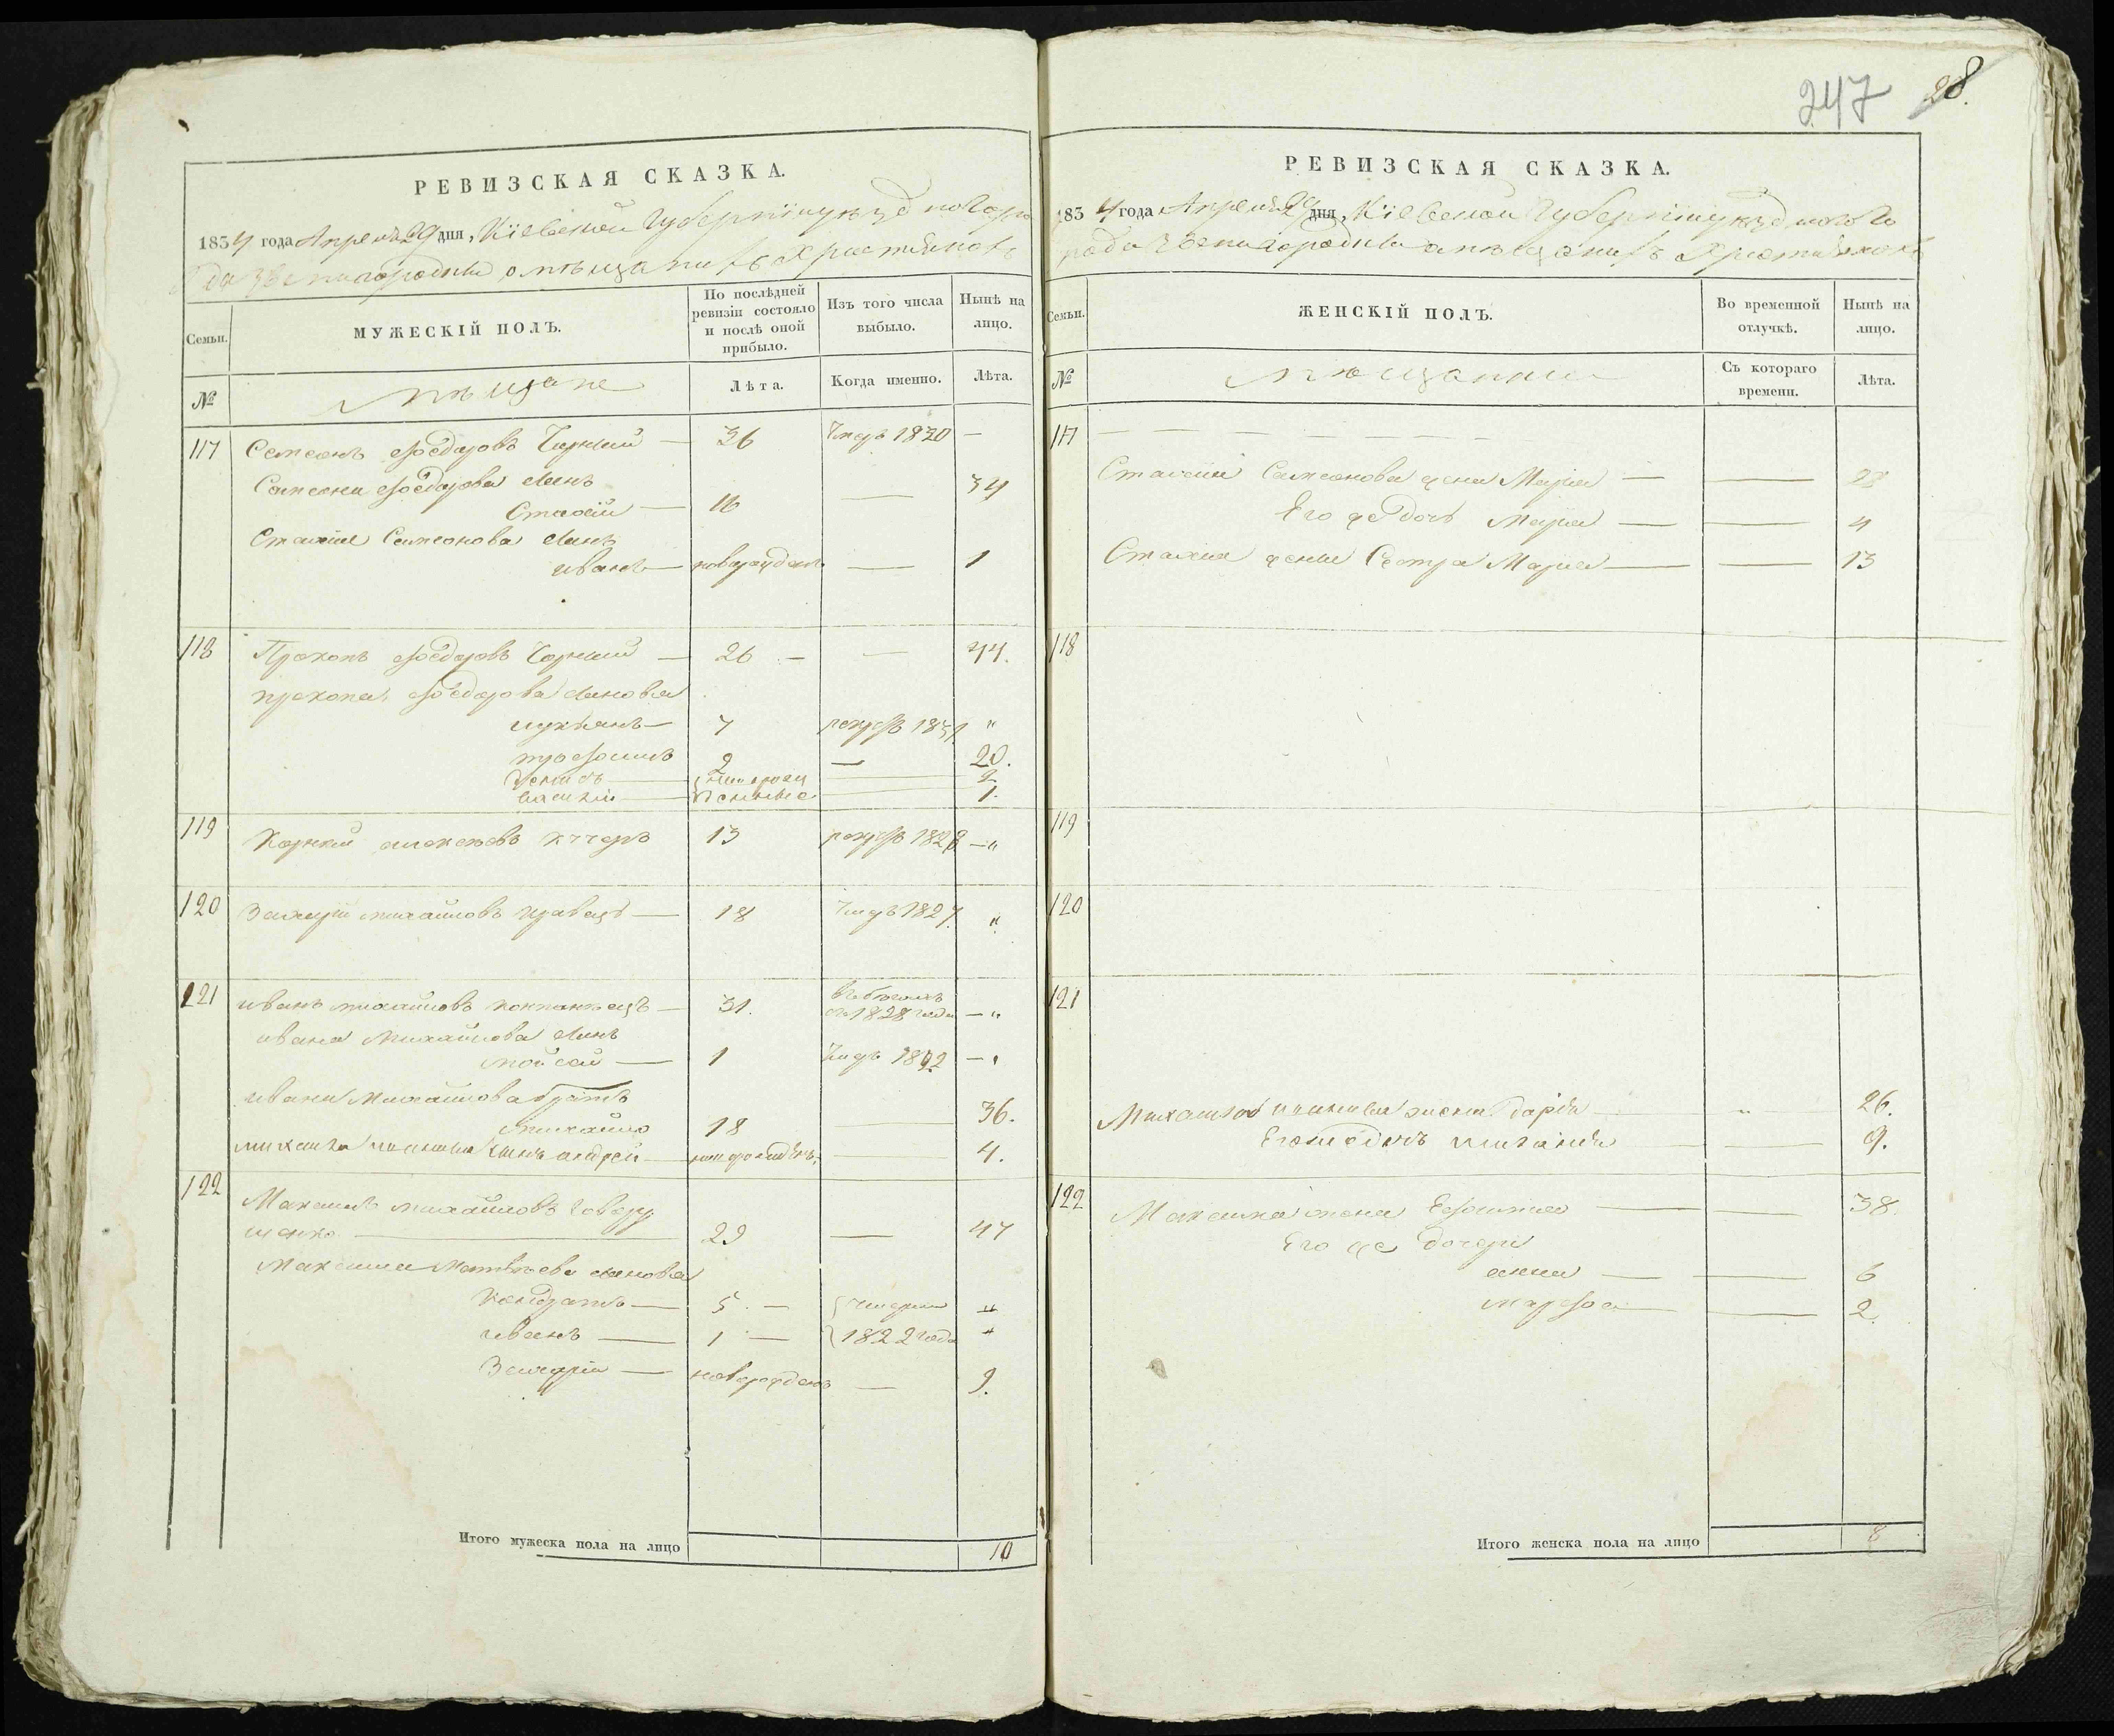 247 28.
РЕВИЗСКАЯ СКАЗКА.
1834 года Апреля 29 дня, Кіевской Губерніи уѣзднаго горо
да Звенигородки о мѣщанахъ Христіянахъ
Семьи.
МУЖЕСКІЙ ПОЛЪ.
По послѣдней ревизіи состояло и послѣ оной прибыло.
Изъ того числа выбыло.
Нынѣ на лицо.
№
мѣщане
Лѣта.
Когда именно.
Лѣта.
117 Семенъ Ѳедоровъ Чорный — 36 Умеръ 1830 —
Семена Ѳедорова сынъ
Стахій — 16 — 34
Стахія Семенова сынъ
иванъ — новорожденъ — 1
118 Прокопъ Ѳедоровъ Чорный — 26 — — 44.
прокопа Ѳедорова сыновья
7 рекрутъ 1831 "
трофимъ 2 — 20.
2
василій 1.
119 Корній алексѣевъ 13 рекрутъ 1828 — "
120 Захарій михайловъ кравецъ — 18 Умеръ 1827. "
121 иванъ михайловъ — 31. въ бѣгахъ
съ 1828 года — "
ивана михайлова сынъ
мойсей — 1 Умеръ 1832 — "
ивана михайлова братъ
михайло 18 — 36.
михайла сынъ андрей — новорожденъ — 4.
122 Максимъ михайловъ Говору
щенко — 29 — 47
Максима Матвѣева сыновья
Кондратъ — 5 — умерли "
иванъ — 1 — 1822 года "
Захарій — новорожденъ — 9.
Итого мужеска пола на лицо 10
РЕВИЗСКАЯ СКАЗКА.
1834 года Апреля 29 дня, Кіевской Губерніи уѣзднаго го
рода Звенигородки о мѣщанахъ Христіянахъ
Семьи.
ЖЕНСКІЙ ПОЛЪ.
Во временной отлучкѣ.
Нынѣ на лицо.
№
мѣщанки
Съ котораго времени.
Лѣта.
117 — — — — — — —
Стахія Семенова жена Марія — — 28
Его же дочь Марія — — 4
Стахія жены Сестра Марія — — 13
118
119
120
121
Михайла жена дарія — " 26.
— 9.
122 Максима жена Евфимія — — 38.
Его же дочери
анна — — 6
марфа — — 2.
Итого женска пола на лицо 8